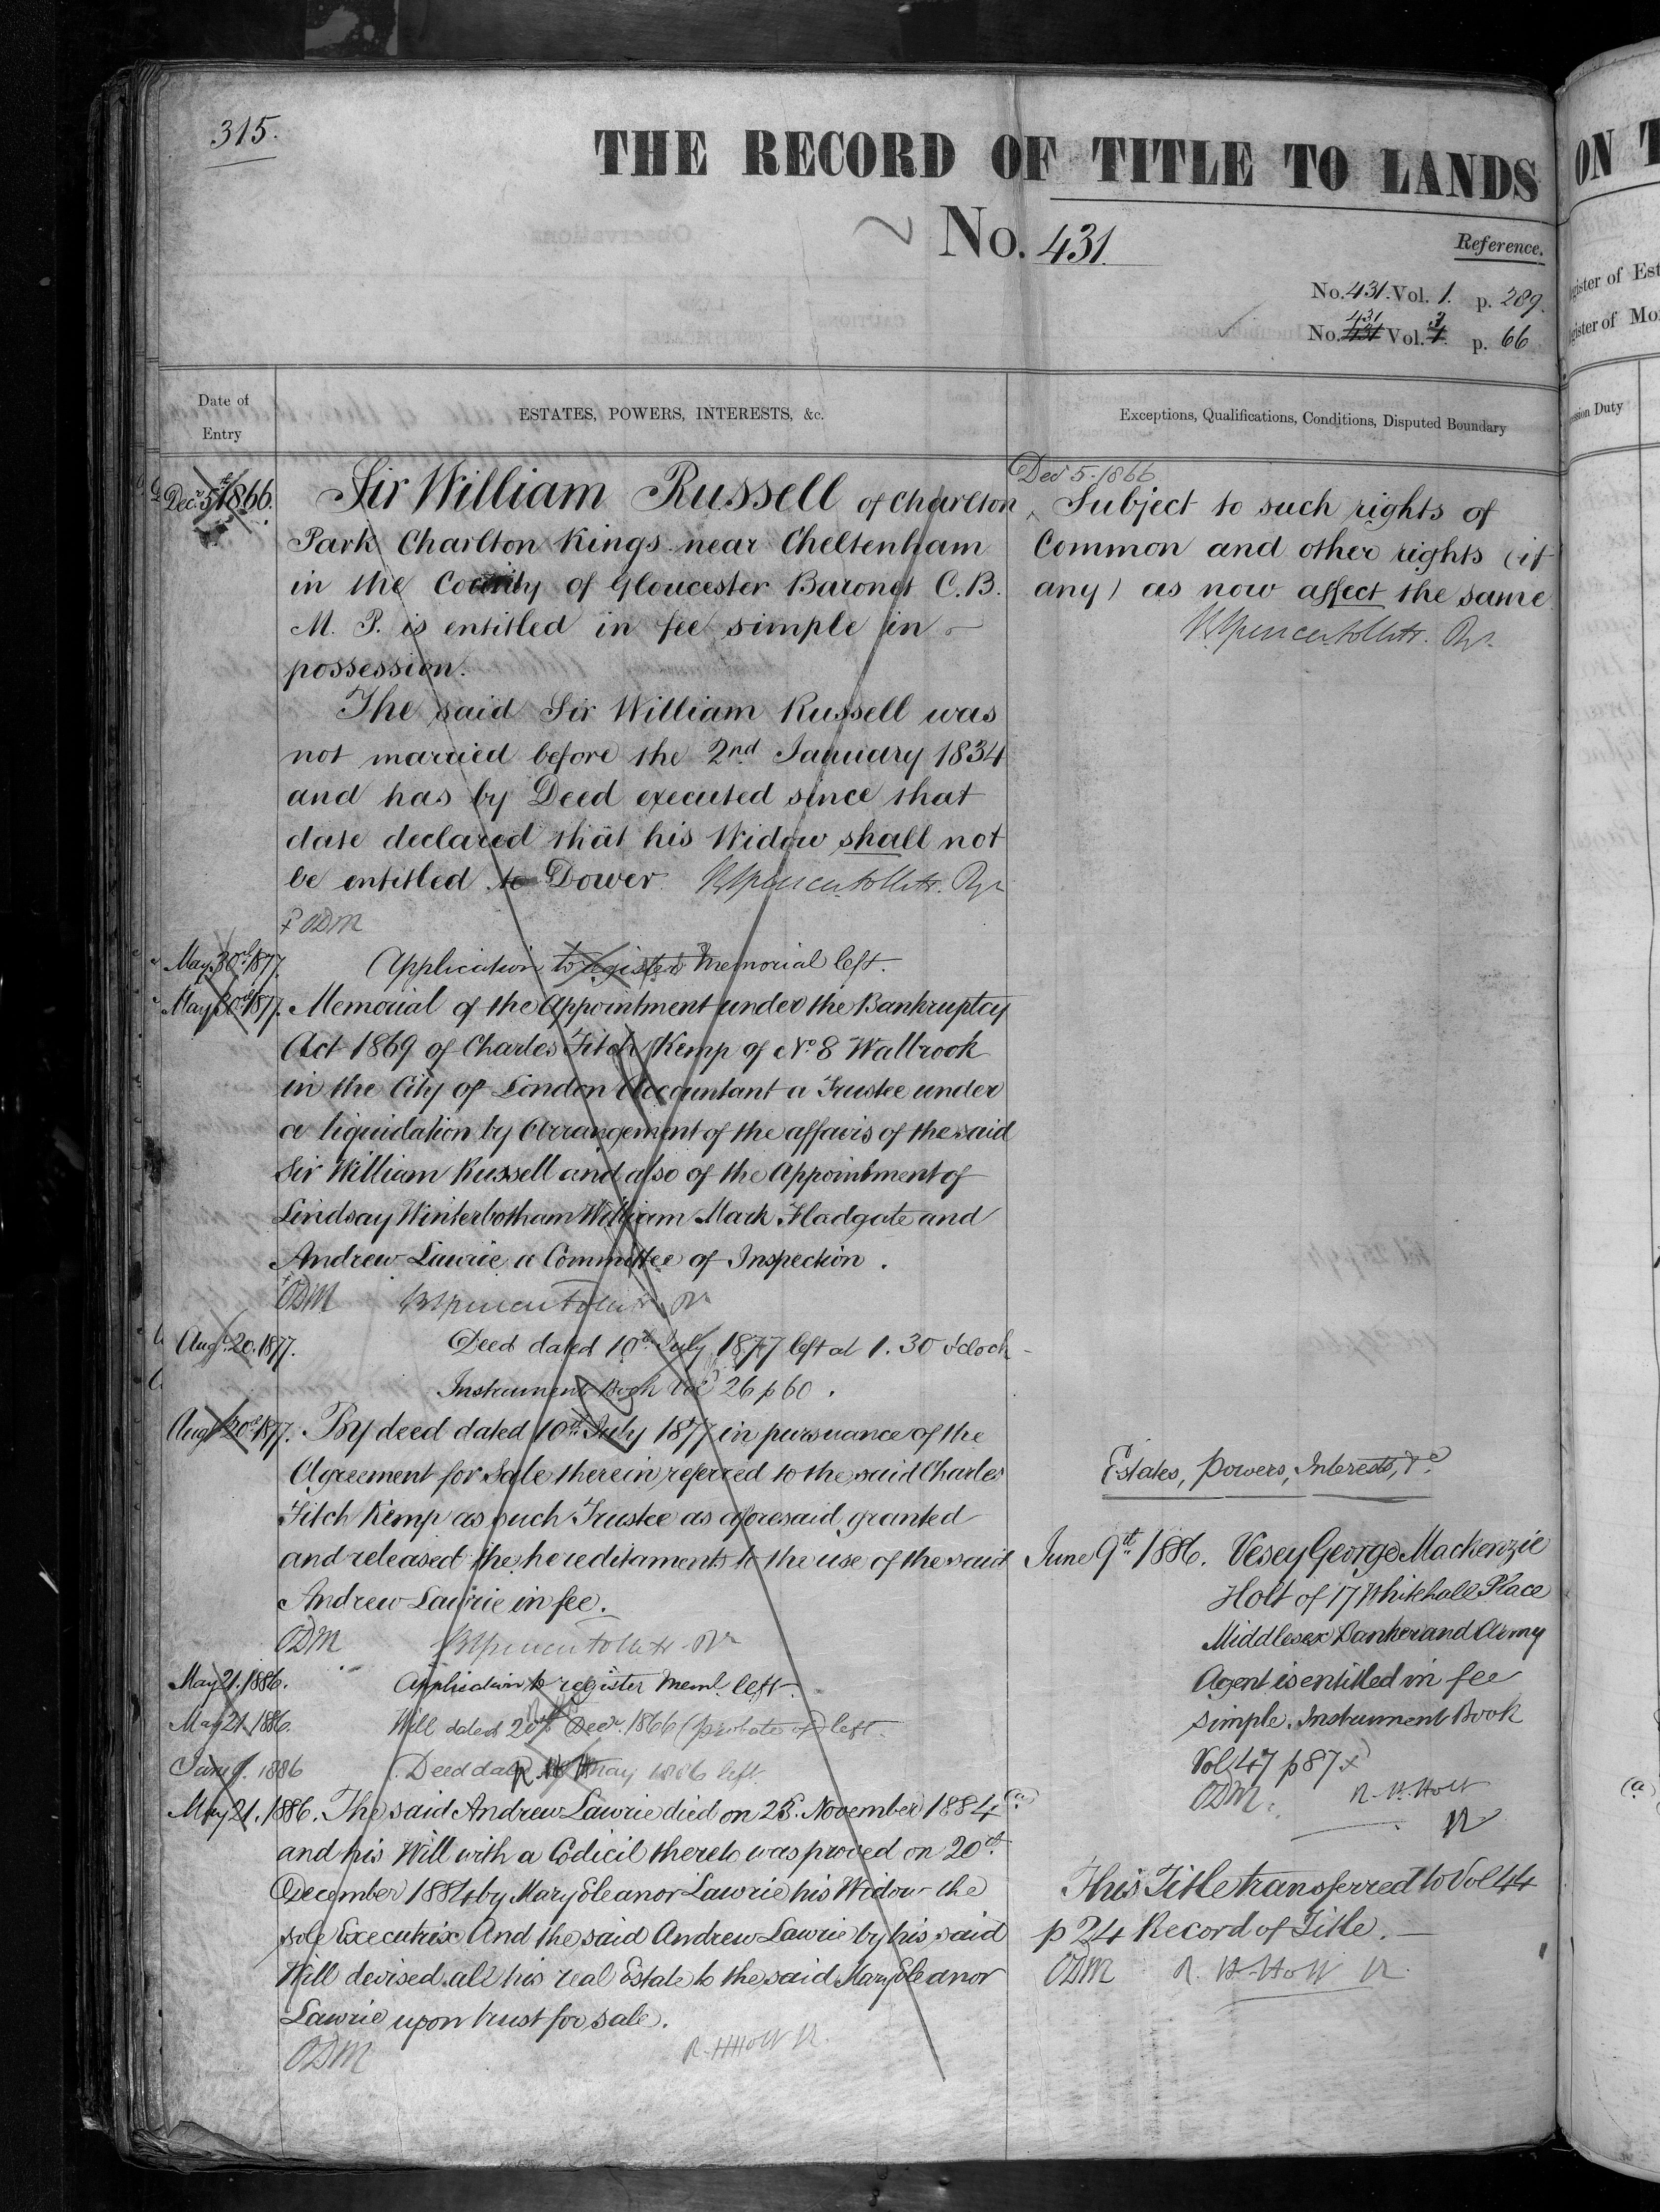 315.
THE RECORD OF TITLE TO LANDS
No. 431.
Reference.
No. 431. Vol. 1. p. 289.
431 3
No. 431 Vol. 1. p. 66
Date of
Entry
ESTATES, POWERS, INTERESTS, &c.
Exceptions, Qualifications, Conditions, Disputed Boundary
Decr 5th 1866. Sir William Russell of Charlton
Park Charlton Kings near Cheltenham
in the County of Gloucester Baronet C.B.
M. P. is entitled in fee simple in
possession.
The said Sir William Russell was
not married before the 2nd January 1834
and has by Deed executed since that
date declared that his Widow shall not
be entitled to Dower.
ODM
May 30th 1877. Application to register Memorial left.
May 30th 1877. Memorial of the Appointment under the Bankruptcy
Act 1869 of Charles Fitch Kemp of No 8 Walbrook
in the City of London Accountant a Trustee under
a liquidation by Arrangement of the affairs of the said
Sir William Russell and also of the Appointment of
Lindsay Winterbotham William Mark Fladgate and
Andrew Lawrie a Committee of Inspection.
ODM
Augt 20. 1877. Deed dated 10th July 1877 left at 1.30 o'clock
Instrument Book Vol 26 p 60.
Augt 20th 1877. By deed dated 10th July 1877 in pursuance of the
Agreement for Sale therein referred to the said Charles
Fitch Kemp as such Trustee as aforesaid granted
and released the hereditaments to the use of the said
Andrew Lawrie in fee.
ODM
May 21. 1886. Application to register Meml. left.
May 21. 1886. Will dated 20th Decr. 1866 (probate of) left.
June 9. 1886 Deed dated May 1886 left.
May 21. 1886. The said Andrew Lawrie died on 25. November 1884 (a)
and his Will with a Codicil thereto was proved on 20th
December 1884 by Mary Eleanor Lawrie his Widow the
sole Executrix And the said Andrew Lawrie by his said
Will devised all his real Estate to the said Mary Eleanor
Lawrie upon trust for sale.
ODM R. H. Holt R.
Decr 5. 1866
Subject to such rights of
Common and other rights (if
any) as now affect the same
Estates, Powers, Interests, &c
June 9th 1886. Vesey George Mackenzie
Holt of 17 Whitehall Place
Middlesex Banker and Army
Agent is entitled in fee
simple. Instrument Book
Vol 47 p 87
ODM R. H. Holt
R
This Title transferred to Vol 44
p 24 Record of Title.
ODM R. H. Holt R.
ON T
gister of Est
gister of Mo
ession Duty
(a)